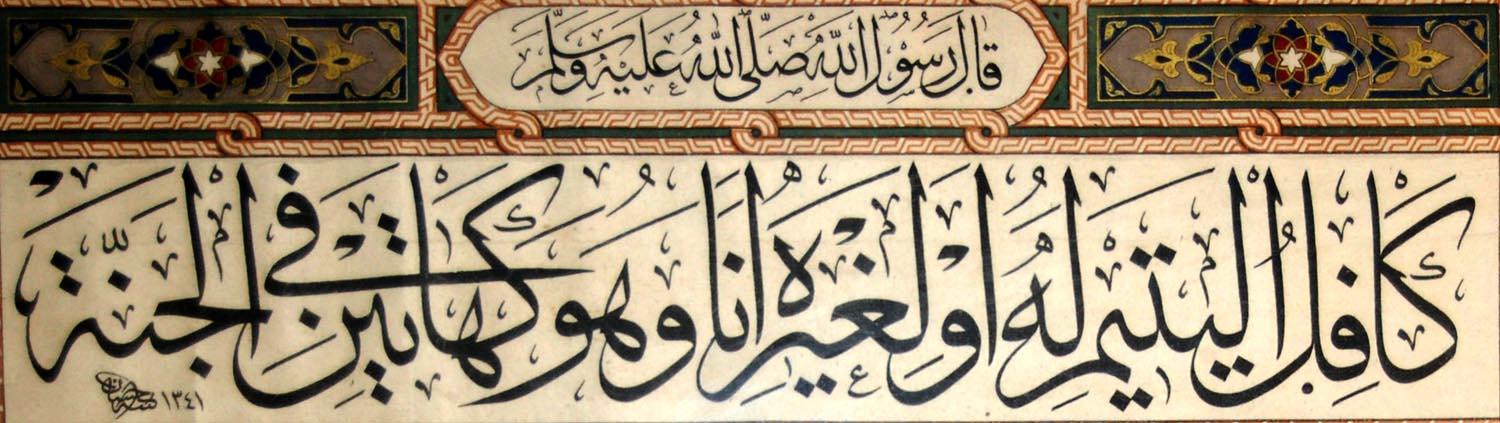 قَالَ رَسُوْلُ اللهِ صَلَّى اللهُ عَلَيْهِ وَسَلَّمَ
كَافِلُ الْيَتِيْمِ لَهُ اَوْ لِغَيْرِهِ اَنَا وَهُوَ كَهَاتَيْنِ فِى الْجَنَّةِ
١٣٤١